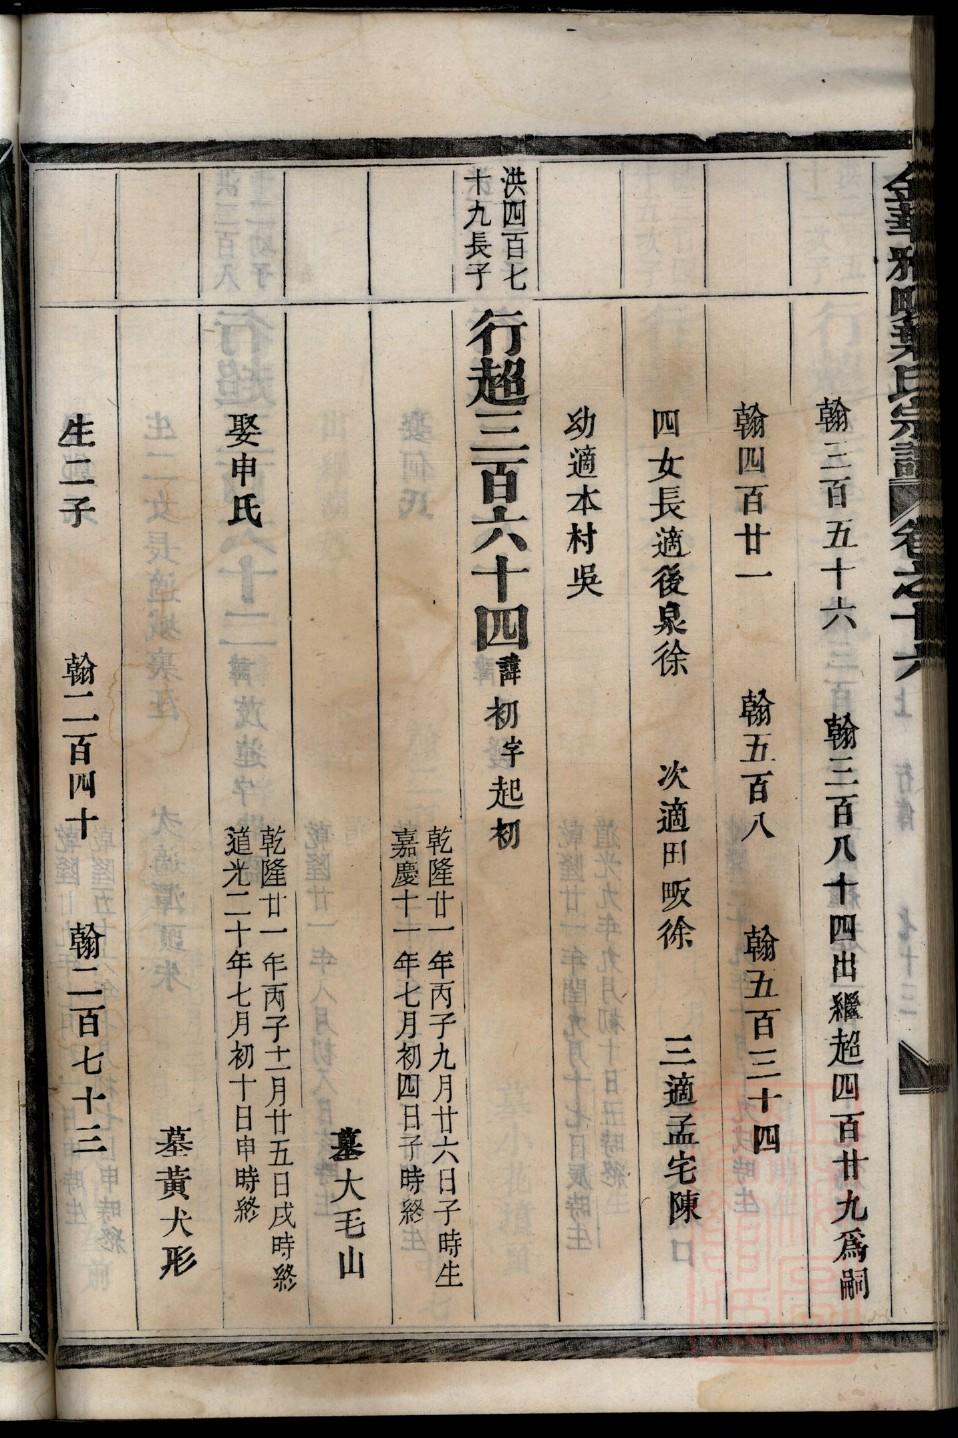 金華雅畈葉氏宗譜 卷之十六
翰三百五十六 翰三百八十四出繼超四百廿九爲嗣
翰四百廿一 翰五百八 翰五百三十四
四女長適後泉徐 次適田畈徐 三適孟宅陳
幼適本村吳
洪四百七
十九長子
行超三百六十四諱初字起初
乾隆廿一年丙子九月廿六日子時生
嘉慶十一年七月初四日子時終
墓大毛山
娶申氏
乾隆廿一年丙子十一月廿五日戌時終
道光二十年七月初十日申時終
墓黃犬形
生二子 翰二百四十 翰二百七十三